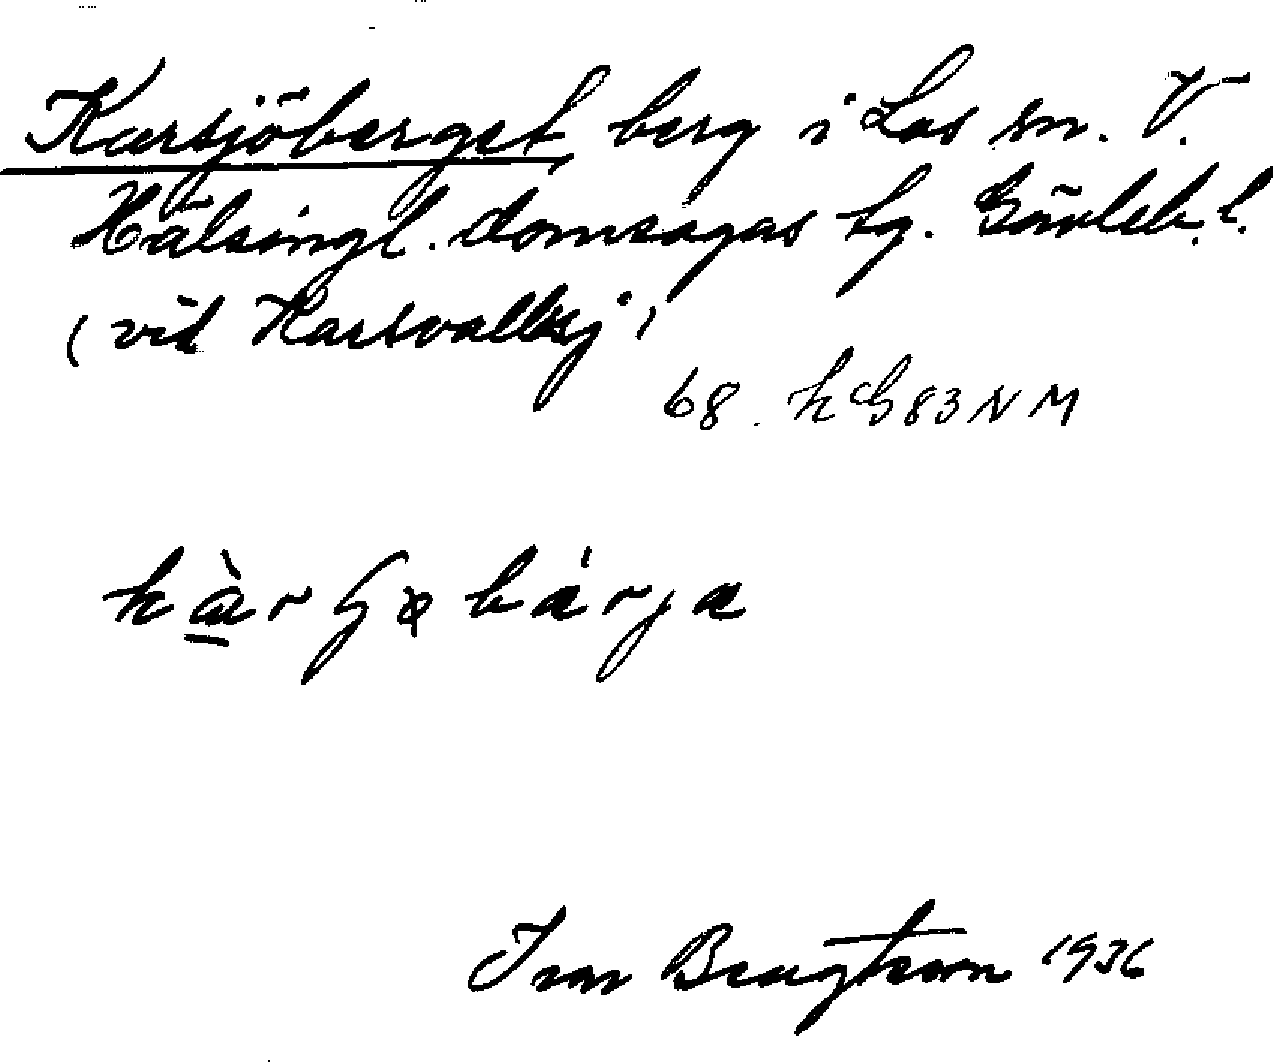 Karsjöberget, berg i Los sn. V.
Hälsingl. domsagas tg. Gävleb. l.
(vid Karsvallsj)
68. h G 83 N M
Ivar Bengtsson 1936